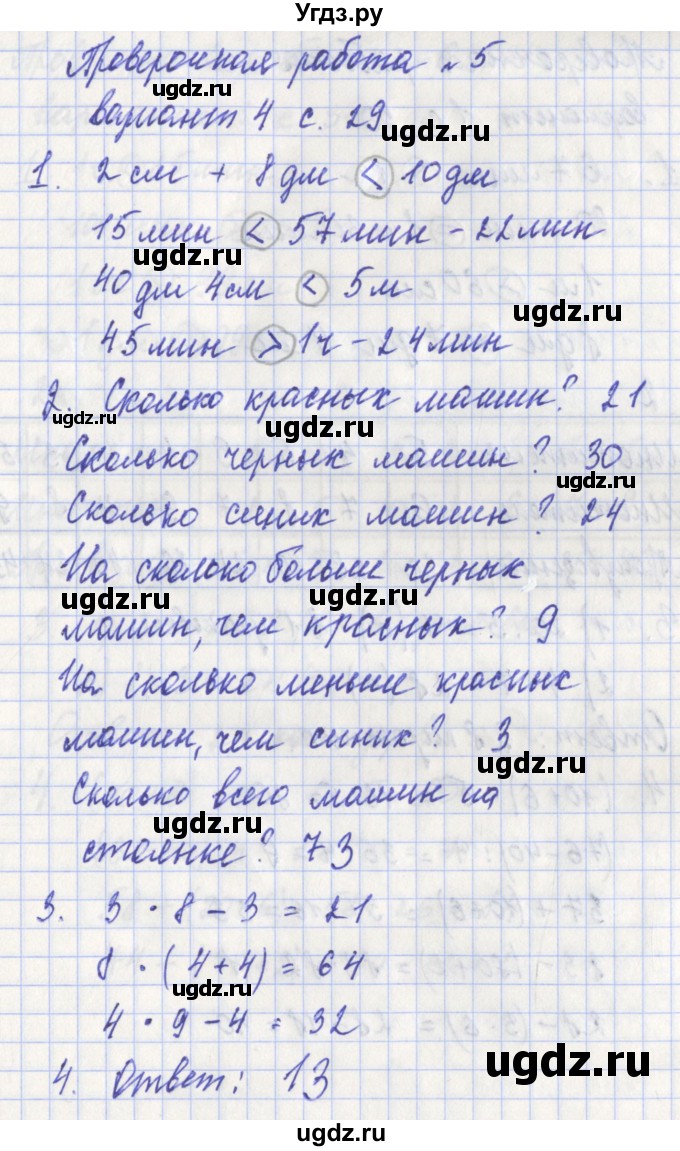 Угдз.ру
Проверочная работа №5
вариант 4 с. 29
ugdz.ru
1. 2 см + 8 дм < 10 дм
15 мин < 57 мин - 22 мин
ugdz.ru
40 дм 4 см < 5 м
ugdz.ru
45 мин > 1 ч - 24 мин
2. Сколько красных машин? 21
ugdz.ru
ugdz.ru
Сколько черных машин? 30
ugdz.ru
Сколько синих машин? 24
На сколько больше черных
ugdz.ru ugdz.ru
машин, чем красных? 9
На сколько меньше красных
машин, чем синих? 3
ugdz.ru
Сколько всего машин на
ugdz.ru
стоянке? 73
3. 3 · 8 - 3 = 21
8 · (4+4) = 64
ugdz.ru
4 · 9 - 4 = 32
4. Ответ: 13
ugdz.ru
ugdz.ru